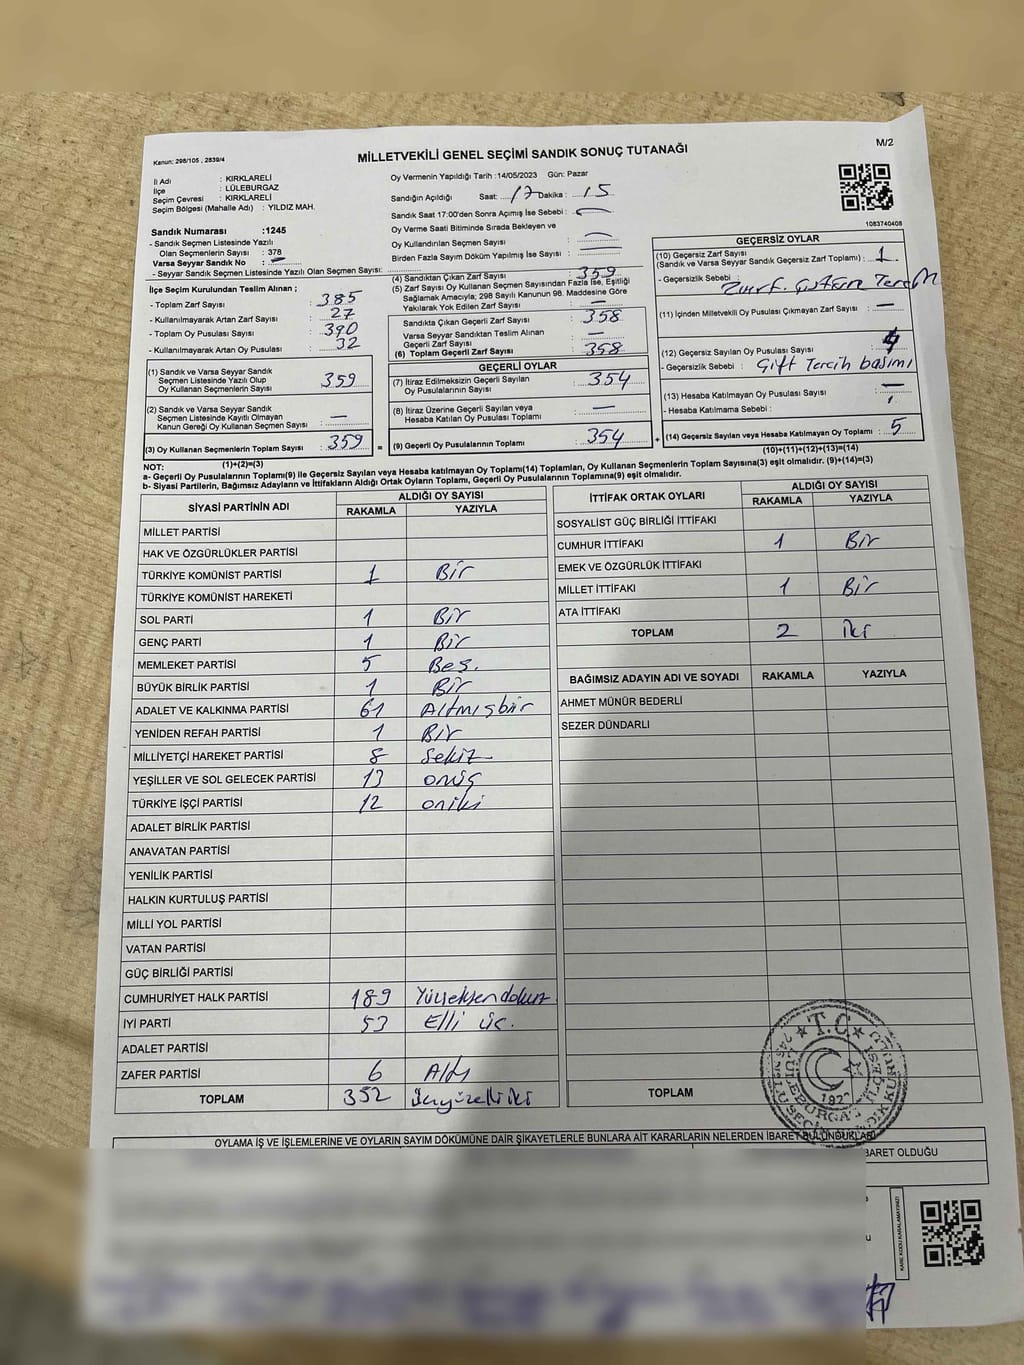 Kanun: 298/105 , 2839/4
MİLLETVEKİLİ GENEL SEÇİMİ SANDIK SONUÇ TUTANAĞI
M/2
İl Adı : KIRKLARELİ
İlçe : LÜLEBURGAZ
Seçim Çevresi : KIRKLARELİ
Seçim Bölgesi (Mahalle Adı) : YILDIZ MAH.
Sandık Numarası :1245
- Sandık Seçmen Listesinde Yazılı
Olan Seçmenlerin Sayısı : 378
Varsa Seyyar Sandık No : —
- Seyyar Sandık Seçmen Listesinde Yazılı Olan Seçmen Sayısı:
Oy Vermenin Yapıldığı Tarih :14/05/2023 Gün: Pazar
Sandığın Açıldığı Saat: 17 Dakika : 15
Sandık Saat 17:00'den Sonra Açımış İse Sebebi : —
Oy Verme Saati Bitiminde Sırada Bekleyen ve
Oy Kullandırılan Seçmen Sayısı : —
Birden Fazla Sayım Döküm Yapılmış İse Sayısı : —
1083740408
İlçe Seçim Kurulundan Teslim Alınan ;
- Toplam Zarf Sayısı : 385
- Kullanılmayarak Artan Zarf Sayısı : 27
- Toplam Oy Pusulası Sayısı : 390
- Kullanılmayarak Artan Oy Pusulası : 32
(1) Sandık ve Varsa Seyyar Sandık
Seçmen Listesinde Yazılı Olup
Oy Kullanan Seçmenlerin Sayısı : 359
(2) Sandık ve Varsa Seyyar Sandık
Seçmen Listesinde Kayıtlı Olmayan
Kanun Gereği Oy Kullanan Seçmen Sayısı : —
(3) Oy Kullanan Seçmenlerin Toplam Sayısı : 359 =
(1)+(2)=(3)
(4) Sandıktan Çıkan Zarf Sayısı : 359
(5) Zarf Sayısı Oy Kullanan Seçmen Sayısından Fazla İse, Eşitliği
Sağlamak Amacıyla; 298 Sayılı Kanunun 98. Maddesine Göre
Yakılarak Yok Edilen Zarf Sayısı : —
Sandıkta Çıkan Geçerli Zarf Sayısı : 358
Varsa Seyyar Sandıktan Teslim Alınan
Geçerli Zarf Sayısı : —
(6) Toplam Geçerli Zarf Sayısı : 358
GEÇERLİ OYLAR
(7) İtiraz Edilmeksizin Geçerli Sayılan
Oy Pusulalarının Sayısı : 354
(8) İtiraz Üzerine Geçerli Sayılan veya
Hesaba Katılan Oy Pusulası Toplamı : —
(9) Geçerli Oy Pusulalarının Toplamı : 354 +
GEÇERSİZ OYLAR
(10) Geçersiz Zarf Sayısı
(Sandık ve Varsa Seyyar Sandık Geçersiz Zarf Toplamı) : 1
- Geçersizlik Sebebi :
(11) İçinden Milletvekili Oy Pusulası Çıkmayan Zarf Sayısı : —
(12) Geçersiz Sayılan Oy Pusulası Sayısı : 4
- Geçersizlik Sebebi : Çift Tercih basımı
(13) Hesaba Katılmayan Oy Pusulası Sayısı : —
- Hesaba Katılmama Sebebi :
(14) Geçersiz Sayılan veya Hesaba Katılmayan Oy Toplamı : 5
(10)+(11)+(12)+(13)=(14)
NOT:
a- Geçerli Oy Pusulalarının Toplamı(9) ile Geçersiz Sayılan veya Hesaba katılmayan Oy Toplamı(14) Toplamları, Oy Kullanan Seçmenlerin Toplam Sayısına(3) eşit olmalıdır. (9)+(14)=(3)
b- Siyasi Partilerin, Bağımsız Adayların ve İttifakların Aldığı Ortak Oyların Toplamı, Geçerli Oy Pusulalarının Toplamına(9) eşit olmalıdır.
SİYASİ PARTİNİN ADI ALDIĞI OY SAYISI
RAKAMLA YAZIYLA
MİLLET PARTİSİ
HAK VE ÖZGÜRLÜKLER PARTİSİ
TÜRKİYE KOMÜNİST PARTİSİ 1 Bir
TÜRKİYE KOMÜNİST HAREKETİ
SOL PARTİ 1 Bir
GENÇ PARTİ 1 Bir
MEMLEKET PARTİSİ 5 Beş.
BÜYÜK BİRLİK PARTİSİ 1 Bir
ADALET VE KALKINMA PARTİSİ 61 Altmışbir
YENİDEN REFAH PARTİSİ 1 Bir
MİLLİYETÇİ HAREKET PARTİSİ 8 Sekiz
YEŞİLLER VE SOL GELECEK PARTİSİ 13 onüç
TÜRKİYE İŞÇİ PARTİSİ 12 oniki
ADALET BİRLİK PARTİSİ
ANAVATAN PARTİSİ
YENİLİK PARTİSİ
HALKIN KURTULUŞ PARTİSİ
MİLLİ YOL PARTİSİ
VATAN PARTİSİ
GÜÇ BİRLİĞİ PARTİSİ
CUMHURİYET HALK PARTİSİ 189 Yüzseksendokuz
İYİ PARTİ 53 Elli üç.
ADALET PARTİSİ
ZAFER PARTİSİ 6 Altı
TOPLAM 352 Üçyüzelliiki
İTTİFAK ORTAK OYLARI ALDIĞI OY SAYISI
RAKAMLA YAZIYLA
SOSYALİST GÜÇ BİRLİĞİ İTTİFAKI
CUMHUR İTTİFAKI 1 Bir
EMEK VE ÖZGÜRLÜK İTTİFAKI
MİLLET İTTİFAKI 1 Bir
ATA İTTİFAKI
TOPLAM 2 iki
BAĞIMSIZ ADAYIN ADI VE SOYADI RAKAMLA YAZIYLA
AHMET MÜNÜR BEDERLİ
SEZER DÜNDARLI
TOPLAM
T.C.
OYLAMA İŞ VE İŞLEMLERİNE VE OYLARIN SAYIM DÖKÜMÜNE DAİR ŞİKAYETLERLE BUNLARA AİT KARARLARIN NELERDEN İBARET BULUNDUKLARI
BARET OLDUĞU